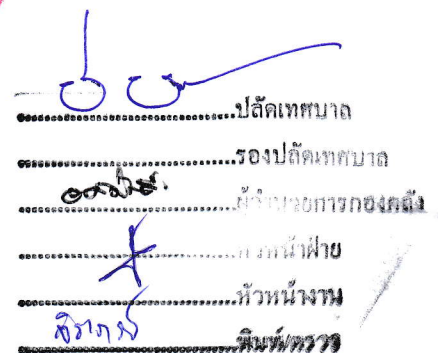 ....................ปลัดเทศบาล
....................รองปลัดเทศบาล
....................ผู้อำนวยการกองคลัง
....................หัวหน้าฝ่าย
....................หัวหน้างาน
....................พิมพ์/ตรวจ